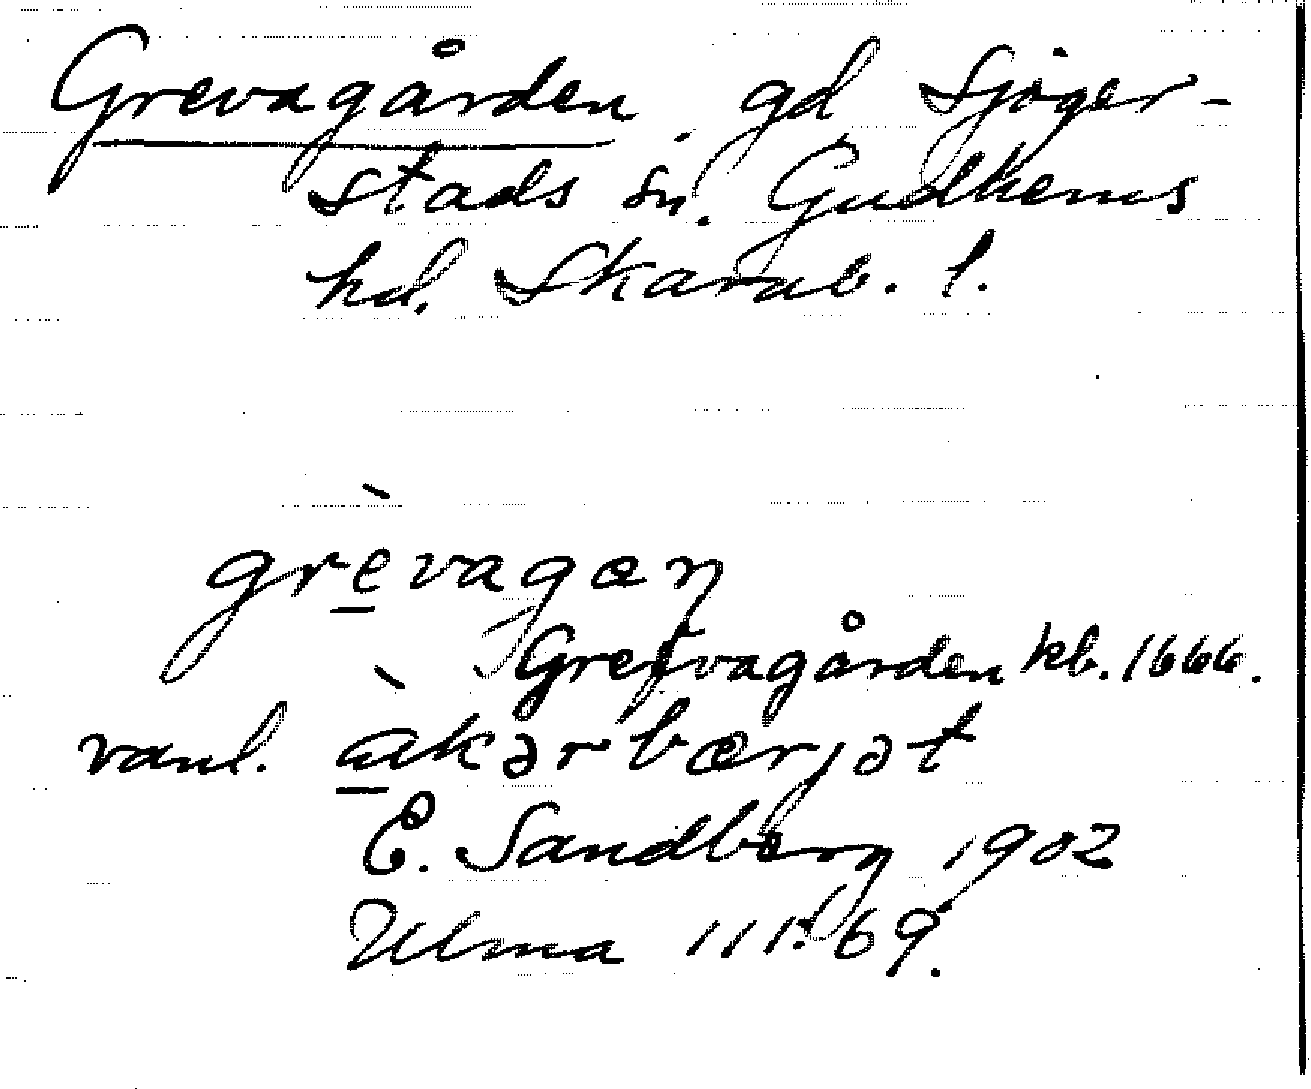 Grevagården, gd Sjöger-
stads sn. Gudhems
hd. Skarab. l.
grèvagæn
Grefvagården kb. 1666.
vanl. àkərbærjət
E. Sandberg 1902
Ulma 111:69.